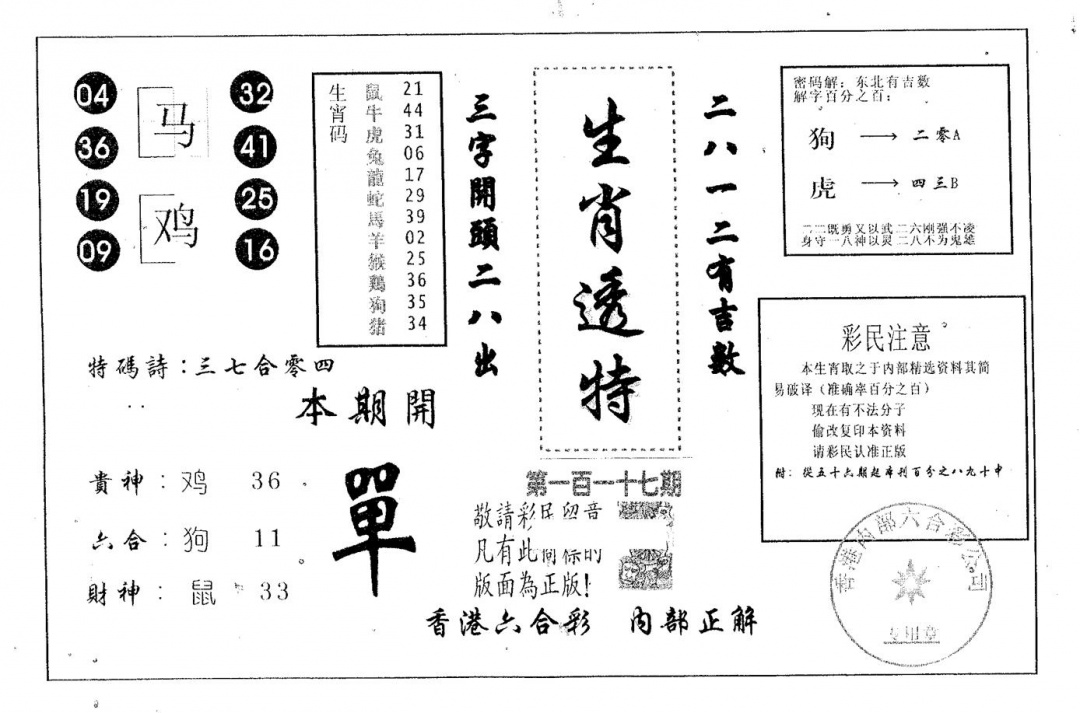 04
36
19
09
马
鸡
32
41
25
16
生宵码
鼠 21
牛 44
虎 31
兔 06
龍 17
蛇 29
馬 39
羊 02
猴 25
鷄 36
狗 35
猪 34
三字開頭二八出
生肖透特
二八一二有吉數
密码解：东北有吉数
解字百分之百：
狗 → 二零A
虎 → 四三B
二二既勇又以武二六刚强不凌
身守一八神以灵二八不为鬼雄
彩民注意
本生肖取之于内部精选资料其简
易破译（准确率百分之百）
现在有不法分子
偷改复印本资料
请彩民认准正版
附：從五十六期起本刊百分之八九十中
特碼詩：三七合零四
本期開
單
貴神：鸡 36
六合：狗 11
財神：鼠 33
第一百一十七期
敬請彩民留音
凡有此開條的
版面為正版！
香港六合彩 内部正解
香港内部六合彩公司
专用章